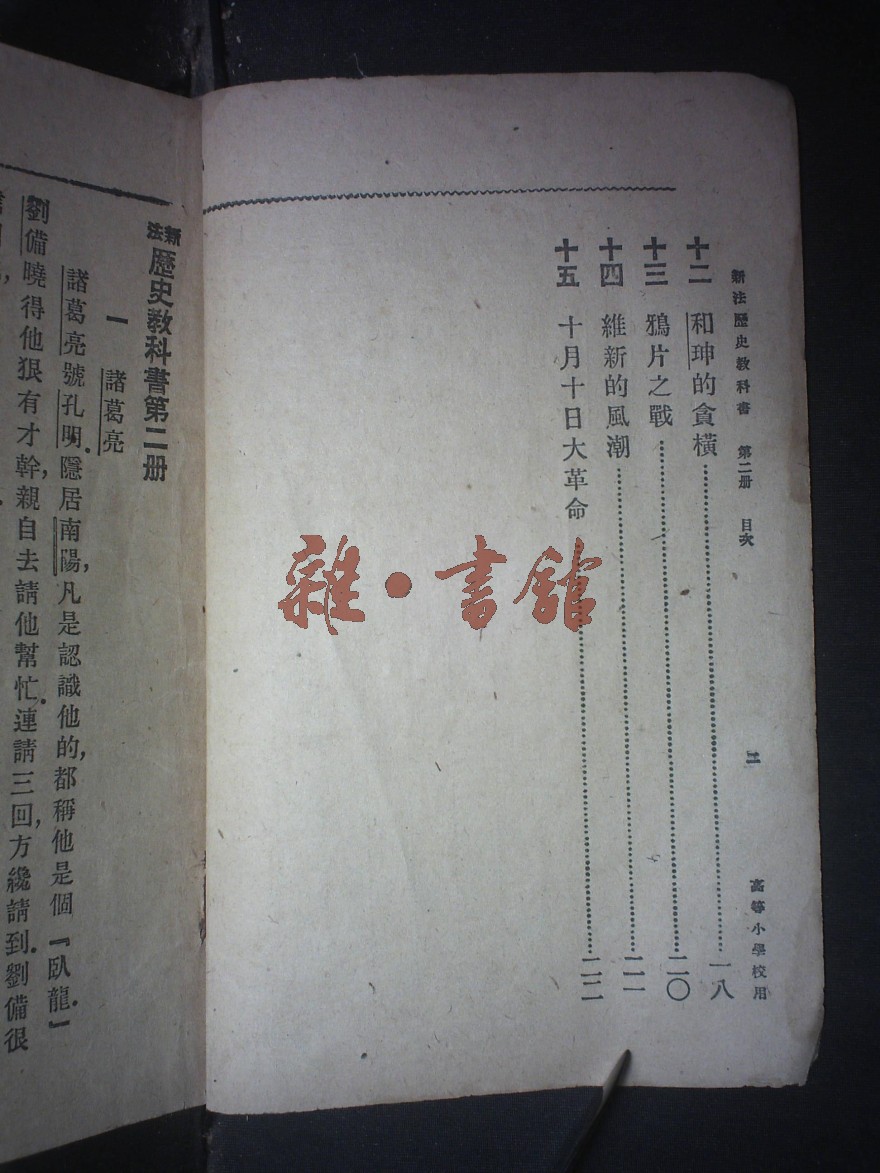 新法歷史教科書 第二册 目次 二 高等小學校用
十二 和珅的貪橫 一八
十三 鴉片之戰 二〇
十四 維新的風潮 二一
十五 十月十日大革命 二二
雜·書館
新法歷史教科書第二册
一 諸葛亮
諸葛亮號孔明.隱居南陽,凡是認識他的,都稱他是個『臥龍.』
劉備曉得他狠有才幹,親自去請他幫忙.連請三回,方纔請到.劉備很